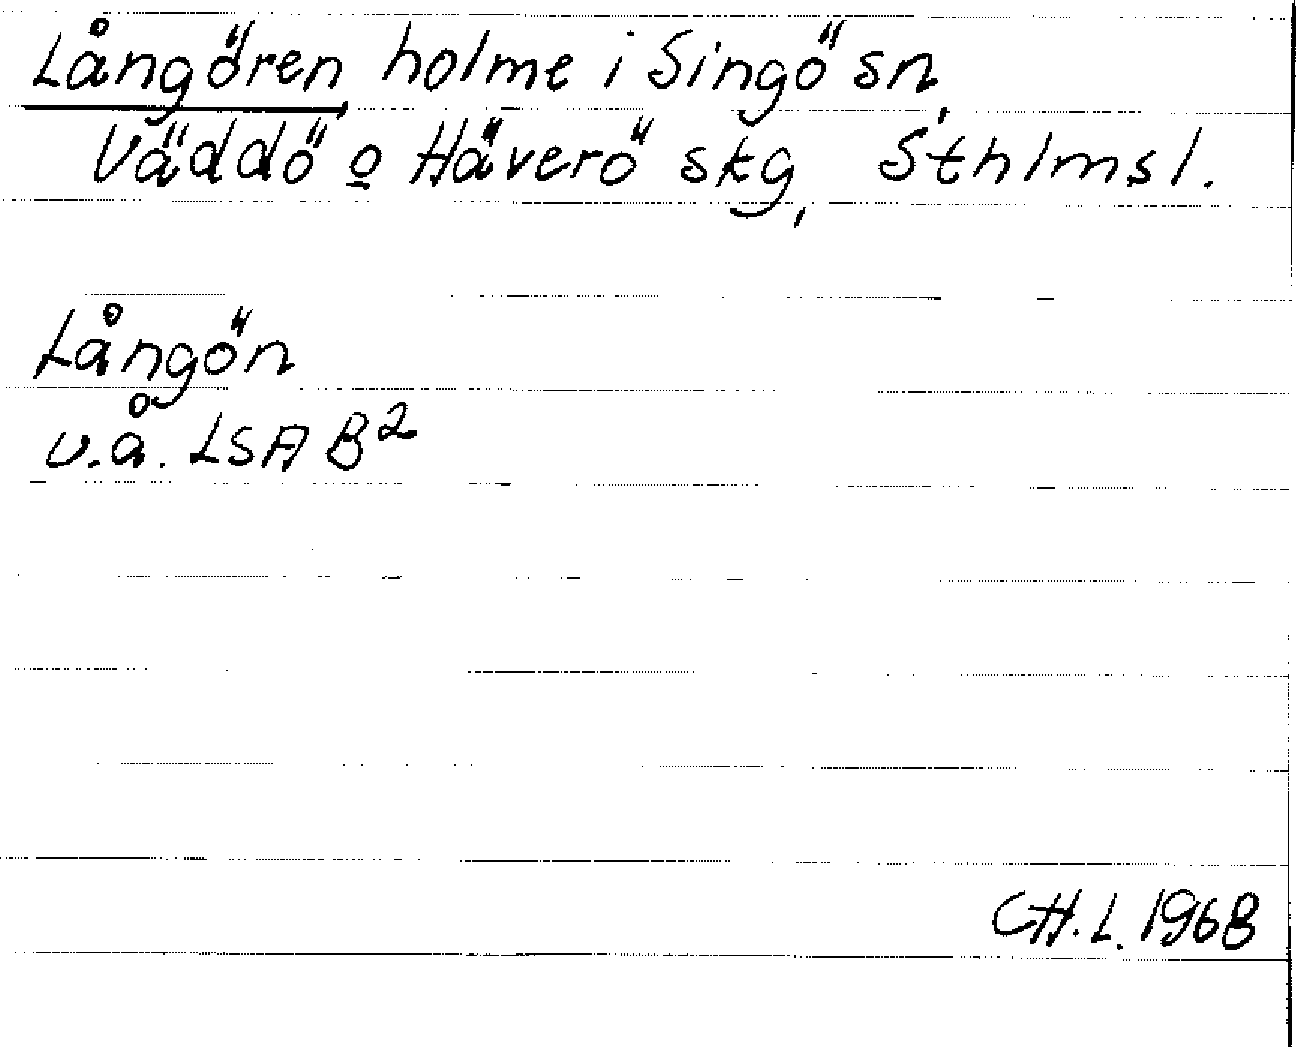 Långören holme i Singö sn,
Väddö o Häverö skg, Sthlmsl.
Långön
u.å. LSA B²
CH.L. 1968